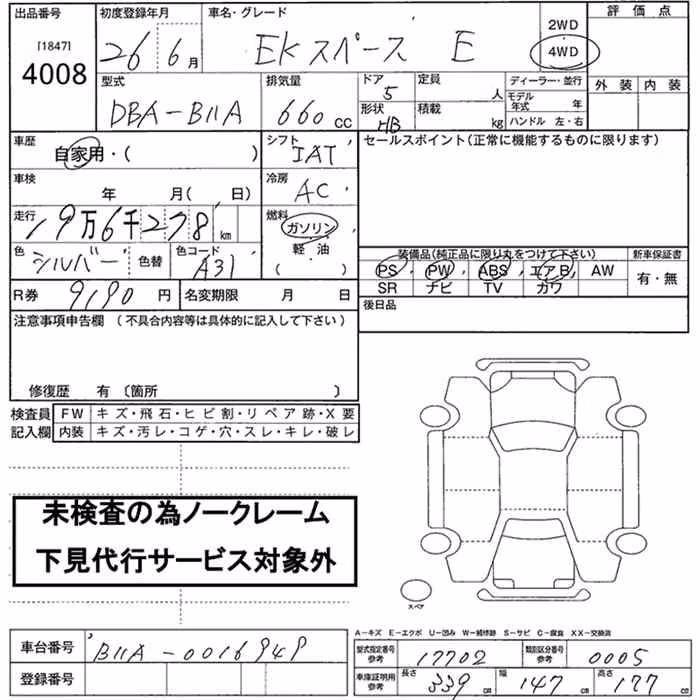 出品番号 初度登録年月 車名・グレード 2WD 評価点
[1847] 26 6月 EKスペース E 4WD
4008
型式 排気量 ドア 定員 ディーラー・並行 外装 内装
DBA-B11A 660cc 5 人 モデル年式 年
形状 HB 積載 kg ハンドル 左・右
車歴 シフト セールスポイント(正常に機能するものに限ります)
自家用・( ) IAT
車検 冷房
年 月( 日) AC
走行 燃料
19万6千278km ガソリン
色 色替 色コード 軽・油
シルバー A31 ( )
装備品(純正品に限り丸をつけて下さい) 新車保証書
PS PW ABS エアB AW 有・無
SR ナビ TV カワ
R券 9190円 名変期限 月 日 後日品
注意事項申告欄 (不具合内容等は具体的に記入して下さい)
修復歴 有 〔箇所 〕
検査員 FW キズ・飛石・ヒビ割・リペア跡・X要
記入欄 内装 キズ・汚レ・コゲ・穴・スレ・キレ・破レ
未検査の為ノークレーム
下見代行サービス対象外
スペア
A-キズ E-エクボ U-凹み W-補修跡 S-サビ C-腐食 XX-交換済
車台番号 B11A-0016949
型式指定番号 参考 17702 類別区分番号 参考 0005
登録番号
車庫証明用 参考 長さ 339cm 幅 147cm 高さ 177cm